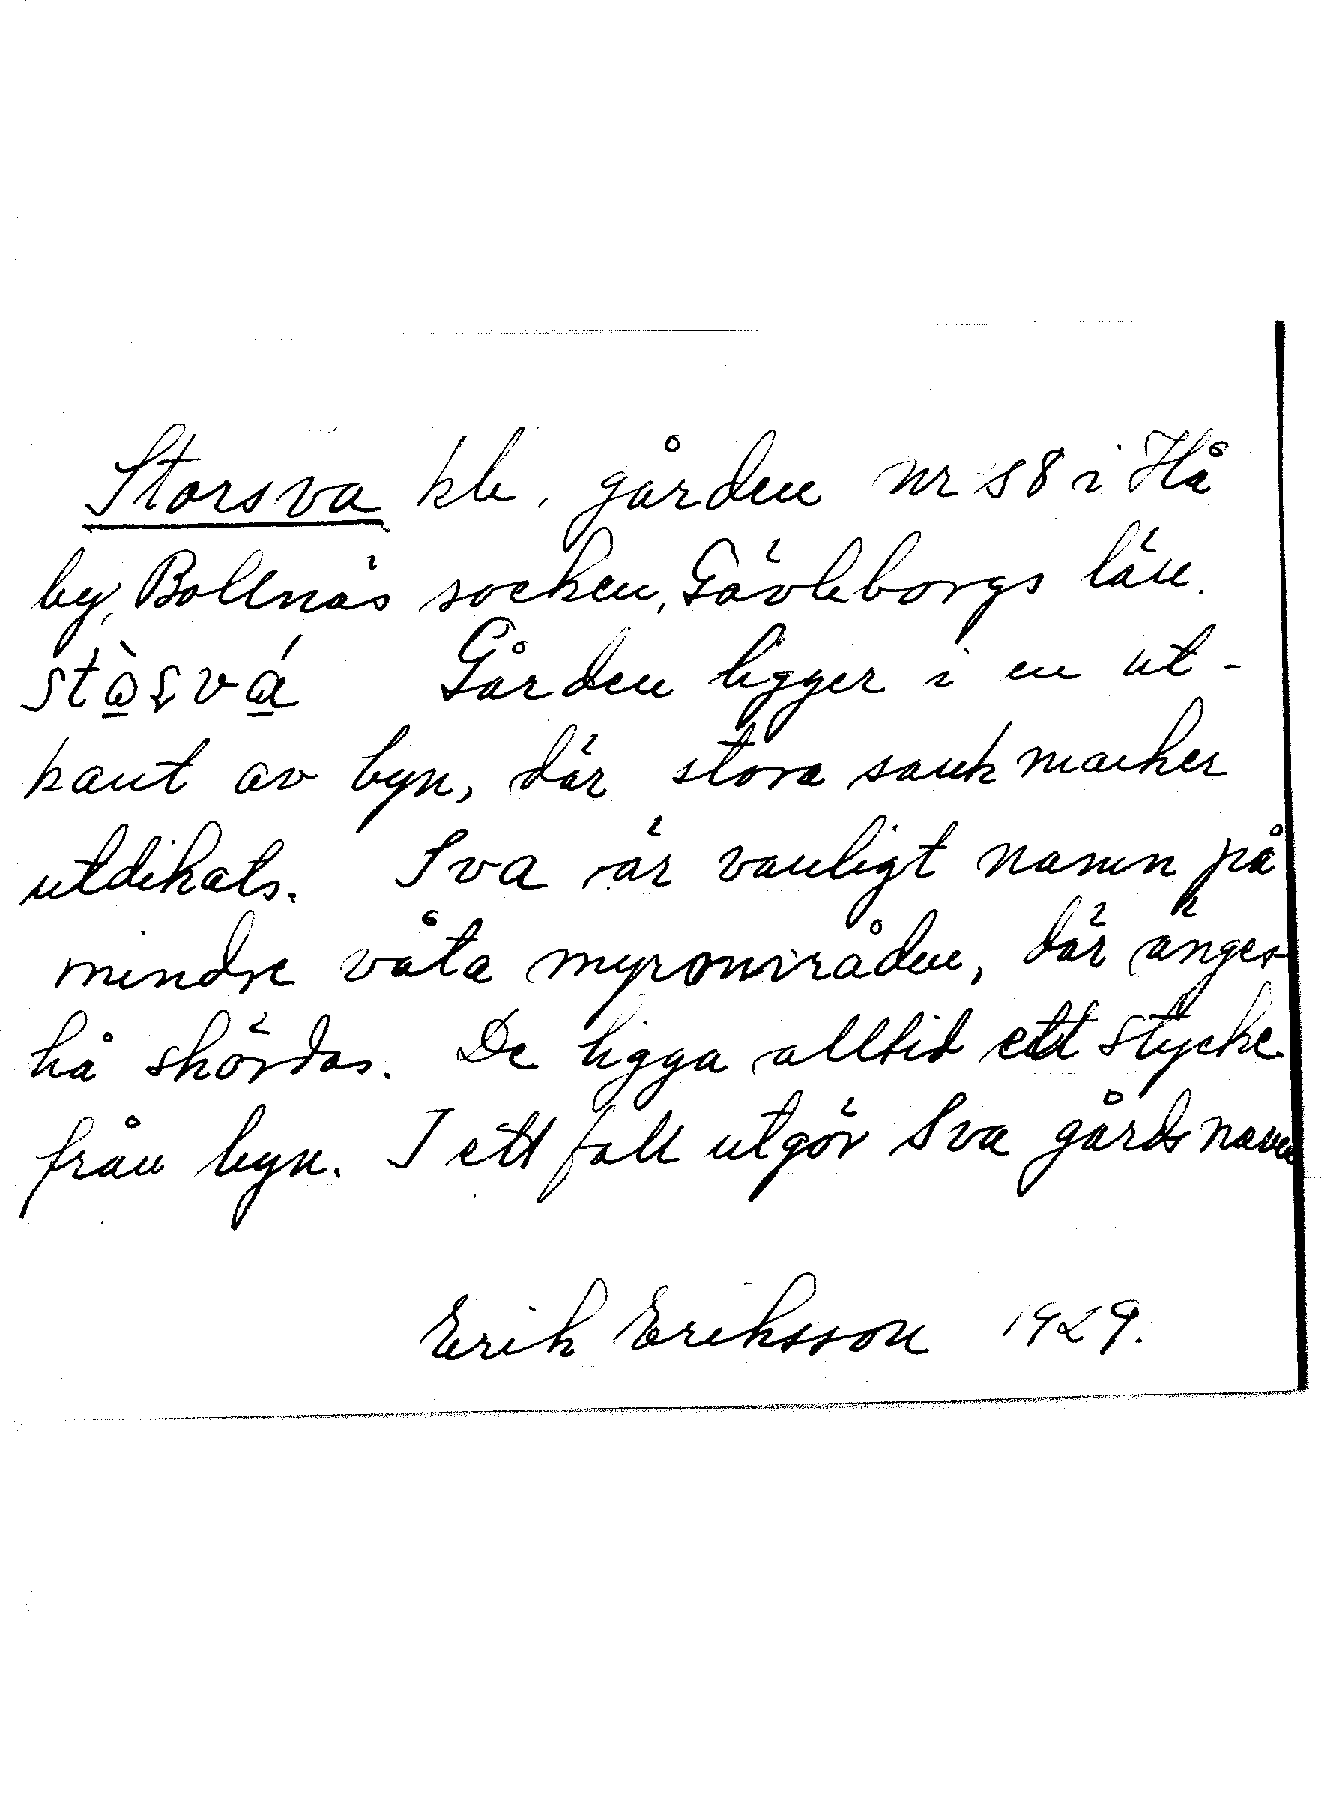 Storsva kle. gården nr 58 i Hå
by, Bollnäs socken, Gävleborgs län.
stòsvá Gården ligger i en ut-
kant av byn, där stora sankmarker
utdikats. Sva är vanligt namn på
mindre våta myrområden, där änges-
hå skördas. De ligga alltid ett stycke
från byn. I ett fall utgör Sva gårdsnamn
Erik Eriksson 1929.